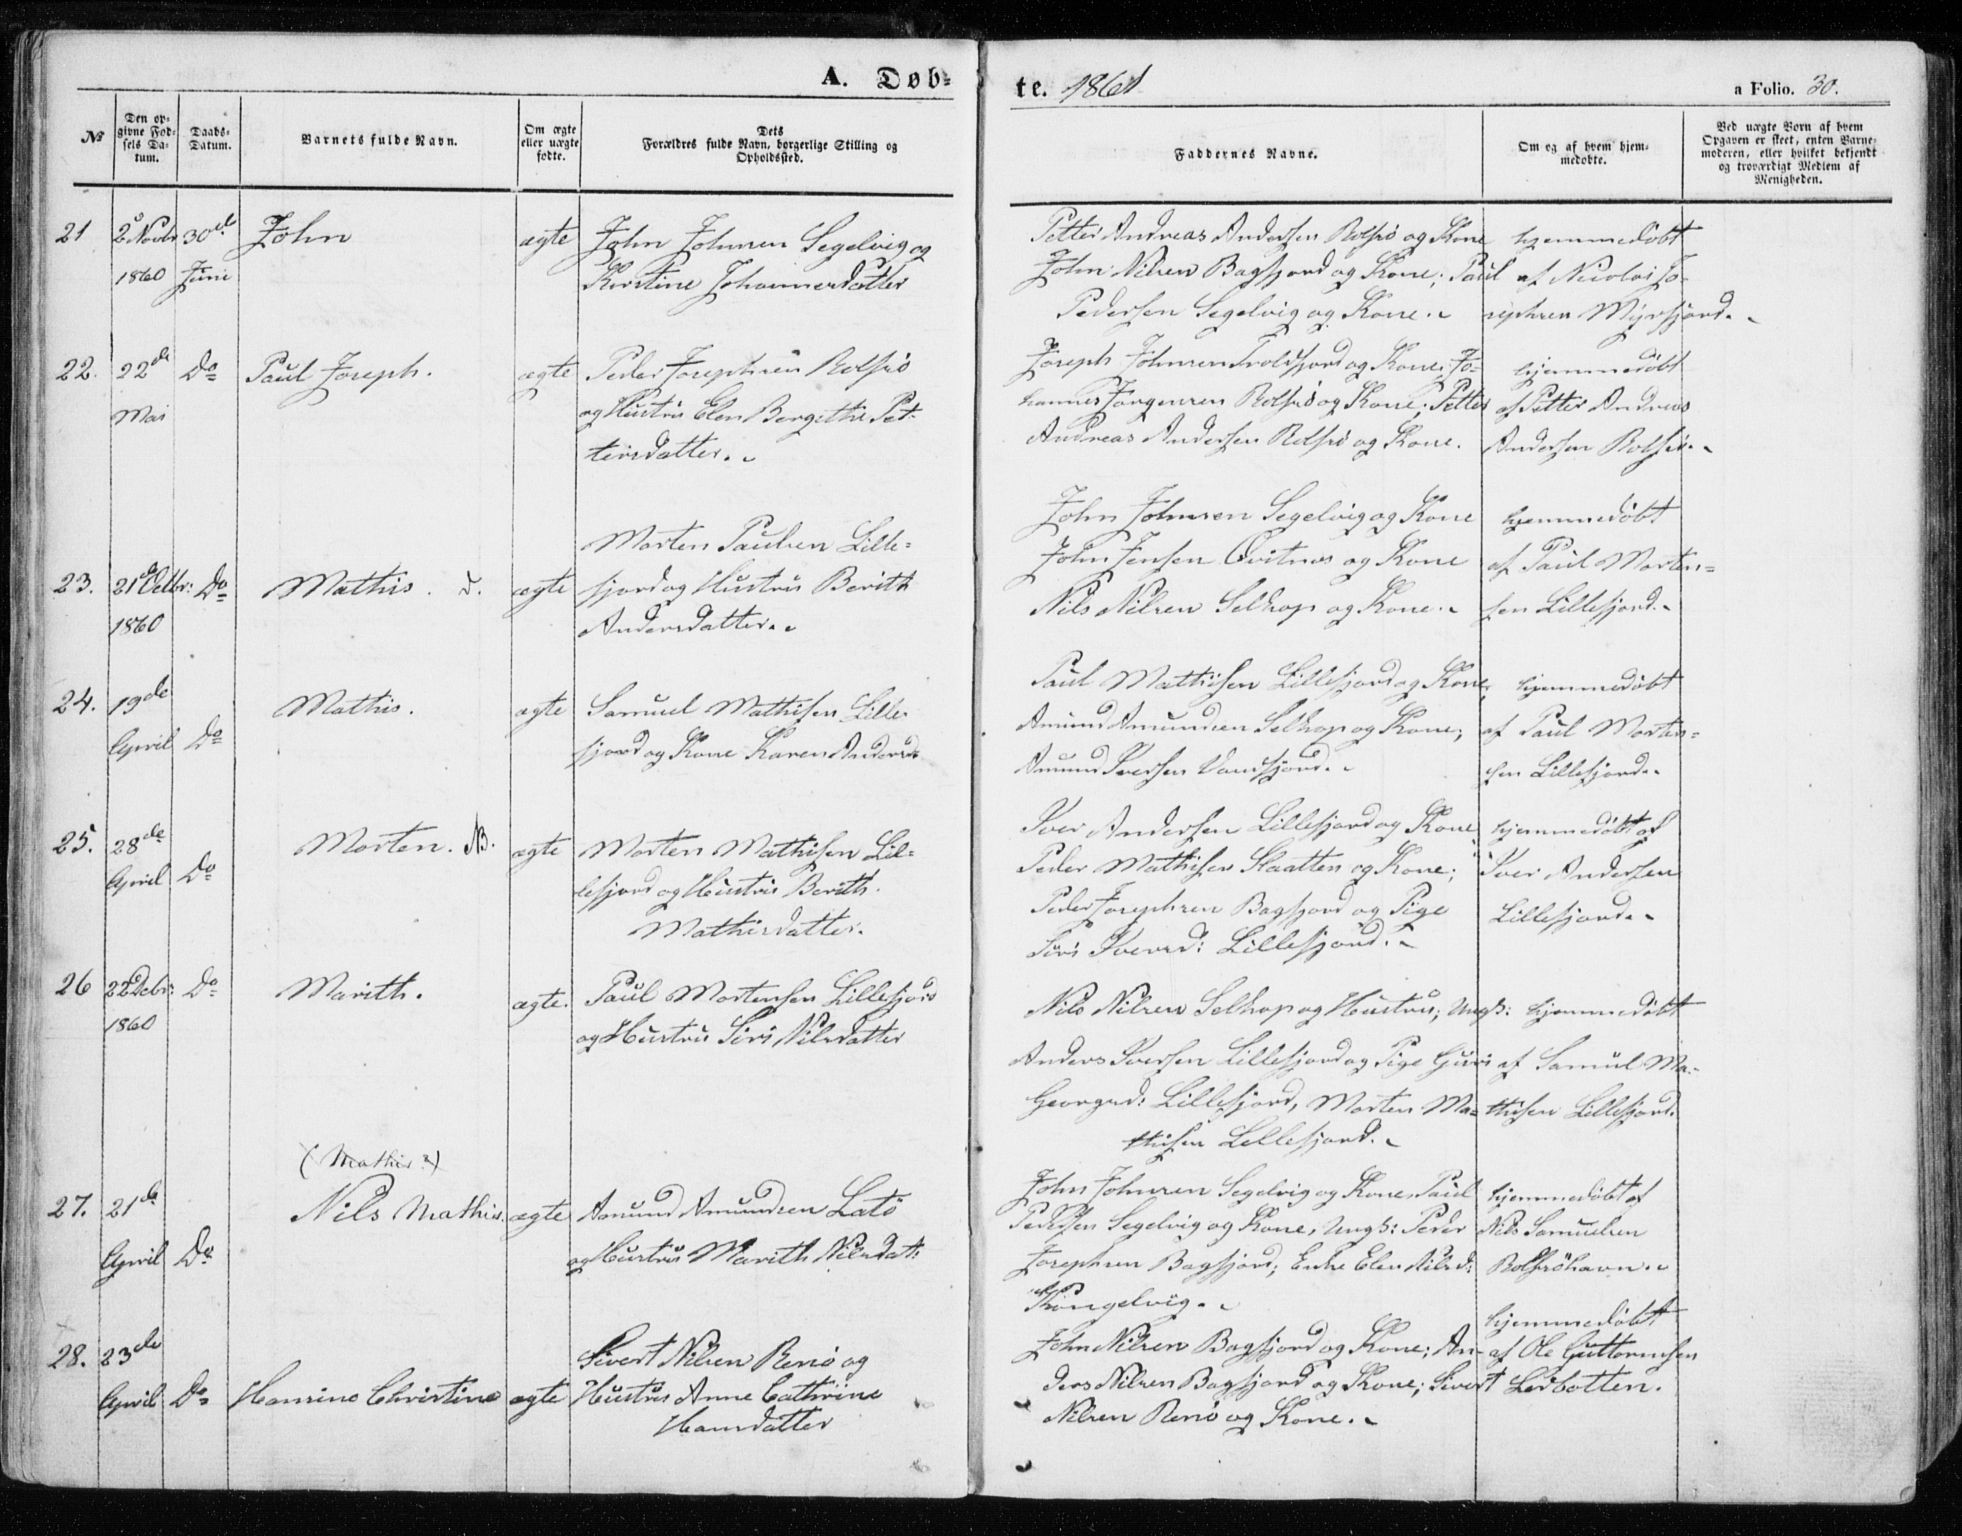 A. Døb-
te. 1861
a Folio. 30.
№
Den op-
givne Fød-
sels Da-
tum.
Daabs-
Datum.
Barnets fulde Navn.
Om ægte
eller uægte
fødte.
Dets
Forældres fulde Navn, borgerlige Stilling og
Opholdssted.
Faddernes Navne.
Om og af hvem hjem-
medøbte.
Ved uægte Børn af hvem
Opgaven er skeet, enten Barne-
moderen, eller hvilket bekjendt
og troværdigt Medlem af
Menigheden.
21 2 Novbr 30de John ægte John Johnsen Segelvig og
1860 Juni Kirstine Johannesdatter
Petter Andreas Andersen Rolfsø og Kone
John Nilsen Bagfjord og Kone; Paul
Pedersen Segelvig og Kone.
hjemmedøbt
af Nicolai Jo-
sephsen Myrfjord.
22. 22de Do Paul Joseph. ægte Peder Josephsen Rolfsø
Mai og Hustru Elen Bergithe Pet-
tersdatter.
Joseph Johnsen Troldfjord og Kone; Jo-
hannes Jørgensen Rolfsø og Kone; Petter
Andreas Andersen Rolfsø og Kone.
hjemmedøbt
af Petter Andreas
Andersen Rolfsø.
Morten Paulsen Lille-
23. 21de Octbr: Do Mathis. d. ægte fjord og Hustru Berith
1860 Andersdatter.
John Johnsen Segelvig og Kone
John Jensen Qvitnes og Kone
Nils Nilsen Selhop og Kone.
hjemmedøbt
af Paul Morten-
sen Lillefjord.
24. 19de Mathis. ægte Samuel Mathisen Lille-
April Do fjord og Kone Karen Andersd:
Paul Mathisen Lillefjord og Kone,
Amund Amundsen Selhop og Kone;
Amund Iversen Vandfjord.
hjemmedøbt
af Paul Morten-
sen Lillefjord.
25. 28de Morten. NB. ægte Morten Mathisen Lil-
April Do lefjord og Hustru Berith
Mathisdatter.
Iver Andersen Lillefjord og Kone
Peder Mathisen Slaatten og Kone;
Peder Josephsen Bagfjord og Pige
Siri Iversd: Lillefjord.
hjemmedøbt af
Iver Andersen
Lillefjord.
26 22 Debr: Do Marith. ægte. Paul Mortensen Lillefjord
1860 og Hustru Siri Nilsdatter
Nils Nilsen Selhop og Hustru; Ungk:
Anders Iversen Lillefjord og Pige Guri
Georgsd: Lillefjord, Morten Ma-
thisen Lillefjord.
hjemmedøbt
af Samuel Ma-
thisen Lillefjord.
(Mathis?)
27. 21de Nils Mathis. ægte Amund Amundsen Latø
April Do og Hustru Marith Nilsdatt:
John Johnsen Segelvig og Kone, Paul
Pedersen Segelvig og Kone, Ungk: Peder
Josephsen Bagfjord; Enke Elen Nilsd:
Kongelvig.
hjemmedøbt af
Nils Samuelsen
Rolfsøhavn.
28. 23de Sivert Nilsen Renø og
April Do Hansine Christine ægte Hustru Anne Cathrine
Hansdatter
John Nilsen Bagfjord og Kone; An-
ders Nilsen Bagfjord og Kone; Sivert
Nilsen Renø og Kone.
hjemmedøbt
af Ole Guttormsen
Leirbotten.